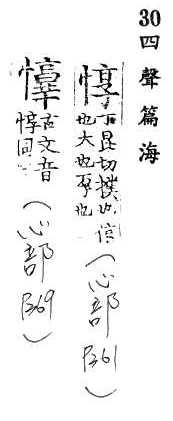 30 四聲篇海
惇 丁昆切撲也信
也大也厚也
(心部 P361)
古文音
惇同
(心部 P369)